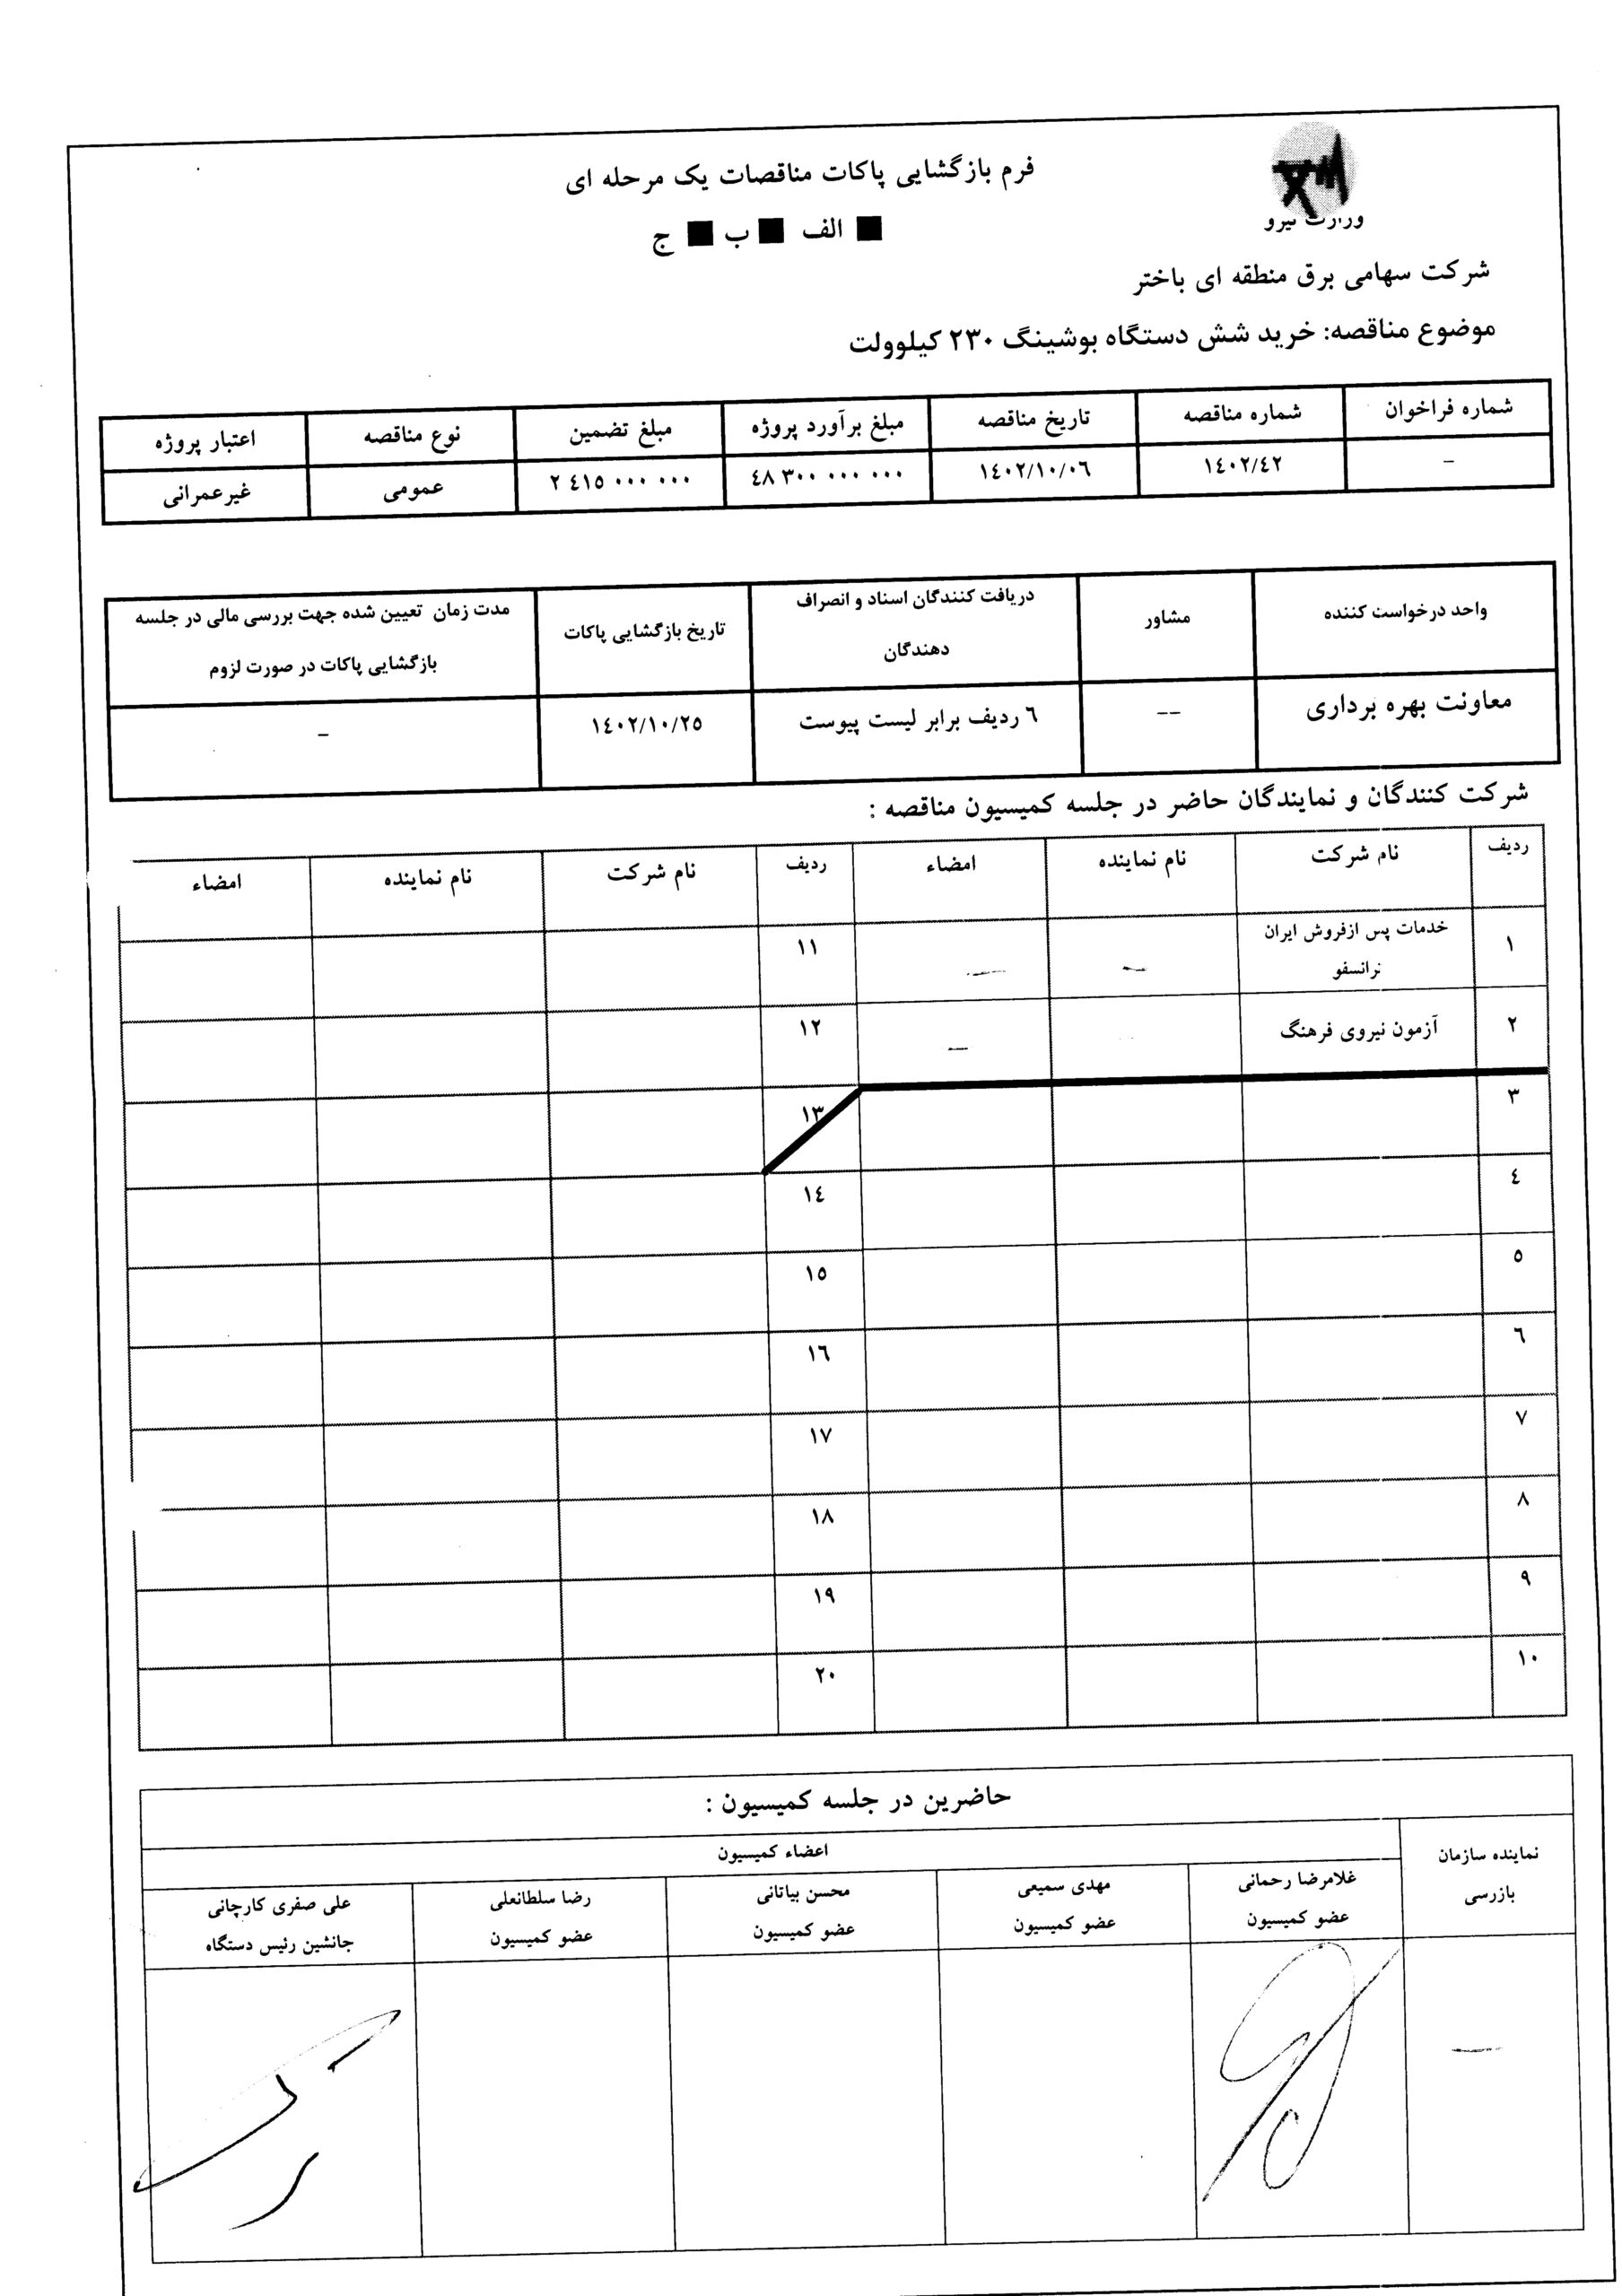 فرم بازگشایی پاکات مناقصات یک مرحله ای
■ الف ■ ب ■ ج
وزارت نیرو
شرکت سهامی برق منطقه ای باختر
موضوع مناقصه: خرید شش دستگاه بوشینگ ۲۳۰ کیلوولت
شماره فراخوان شماره مناقصه تاریخ مناقصه مبلغ برآورد پروژه مبلغ تضمین نوع مناقصه اعتبار پروژه
– ١٤٠٢/٤٢ ١٤٠٢/١٠/٠٦ ٤٨ ٣٠٠ ٠٠٠ ٠٠٠ ٢ ٤١٥ ٠٠٠ ٠٠٠ عمومی غیرعمرانی
واحد درخواست کننده مشاور دریافت کنندگان اسناد و انصراف دهندگان تاریخ بازگشایی پاکات مدت زمان تعیین شده جهت بررسی مالی در جلسه بازگشایی پاکات در صورت لزوم
معاونت بهره برداری -- ٦ ردیف برابر لیست پیوست ١٤٠٢/١٠/٢٥ –
شرکت کنندگان و نمایندگان حاضر در جلسه کمیسیون مناقصه :
ردیف نام شرکت نام نماینده امضاء ردیف نام شرکت نام نماینده امضاء
١ خدمات پس ازفروش ایران ترانسفو – – ١١
٢ آزمون نیروی فرهنگ – ١٢
٣ ١٣
٤ ١٤
٥ ١٥
٦ ١٦
٧ ١٧
٨ ١٨
٩ ١٩
١٠ ٢٠
حاضرین در جلسه کمیسیون :
اعضاء کمیسیون
نماینده سازمان بازرسی
غلامرضا رحمانی مهدی سمیعی محسن بیاتانی رضا سلطانعلی علی صفری کارچانی
عضو کمیسیون عضو کمیسیون عضو کمیسیون عضو کمیسیون جانشین رئیس دستگاه
–